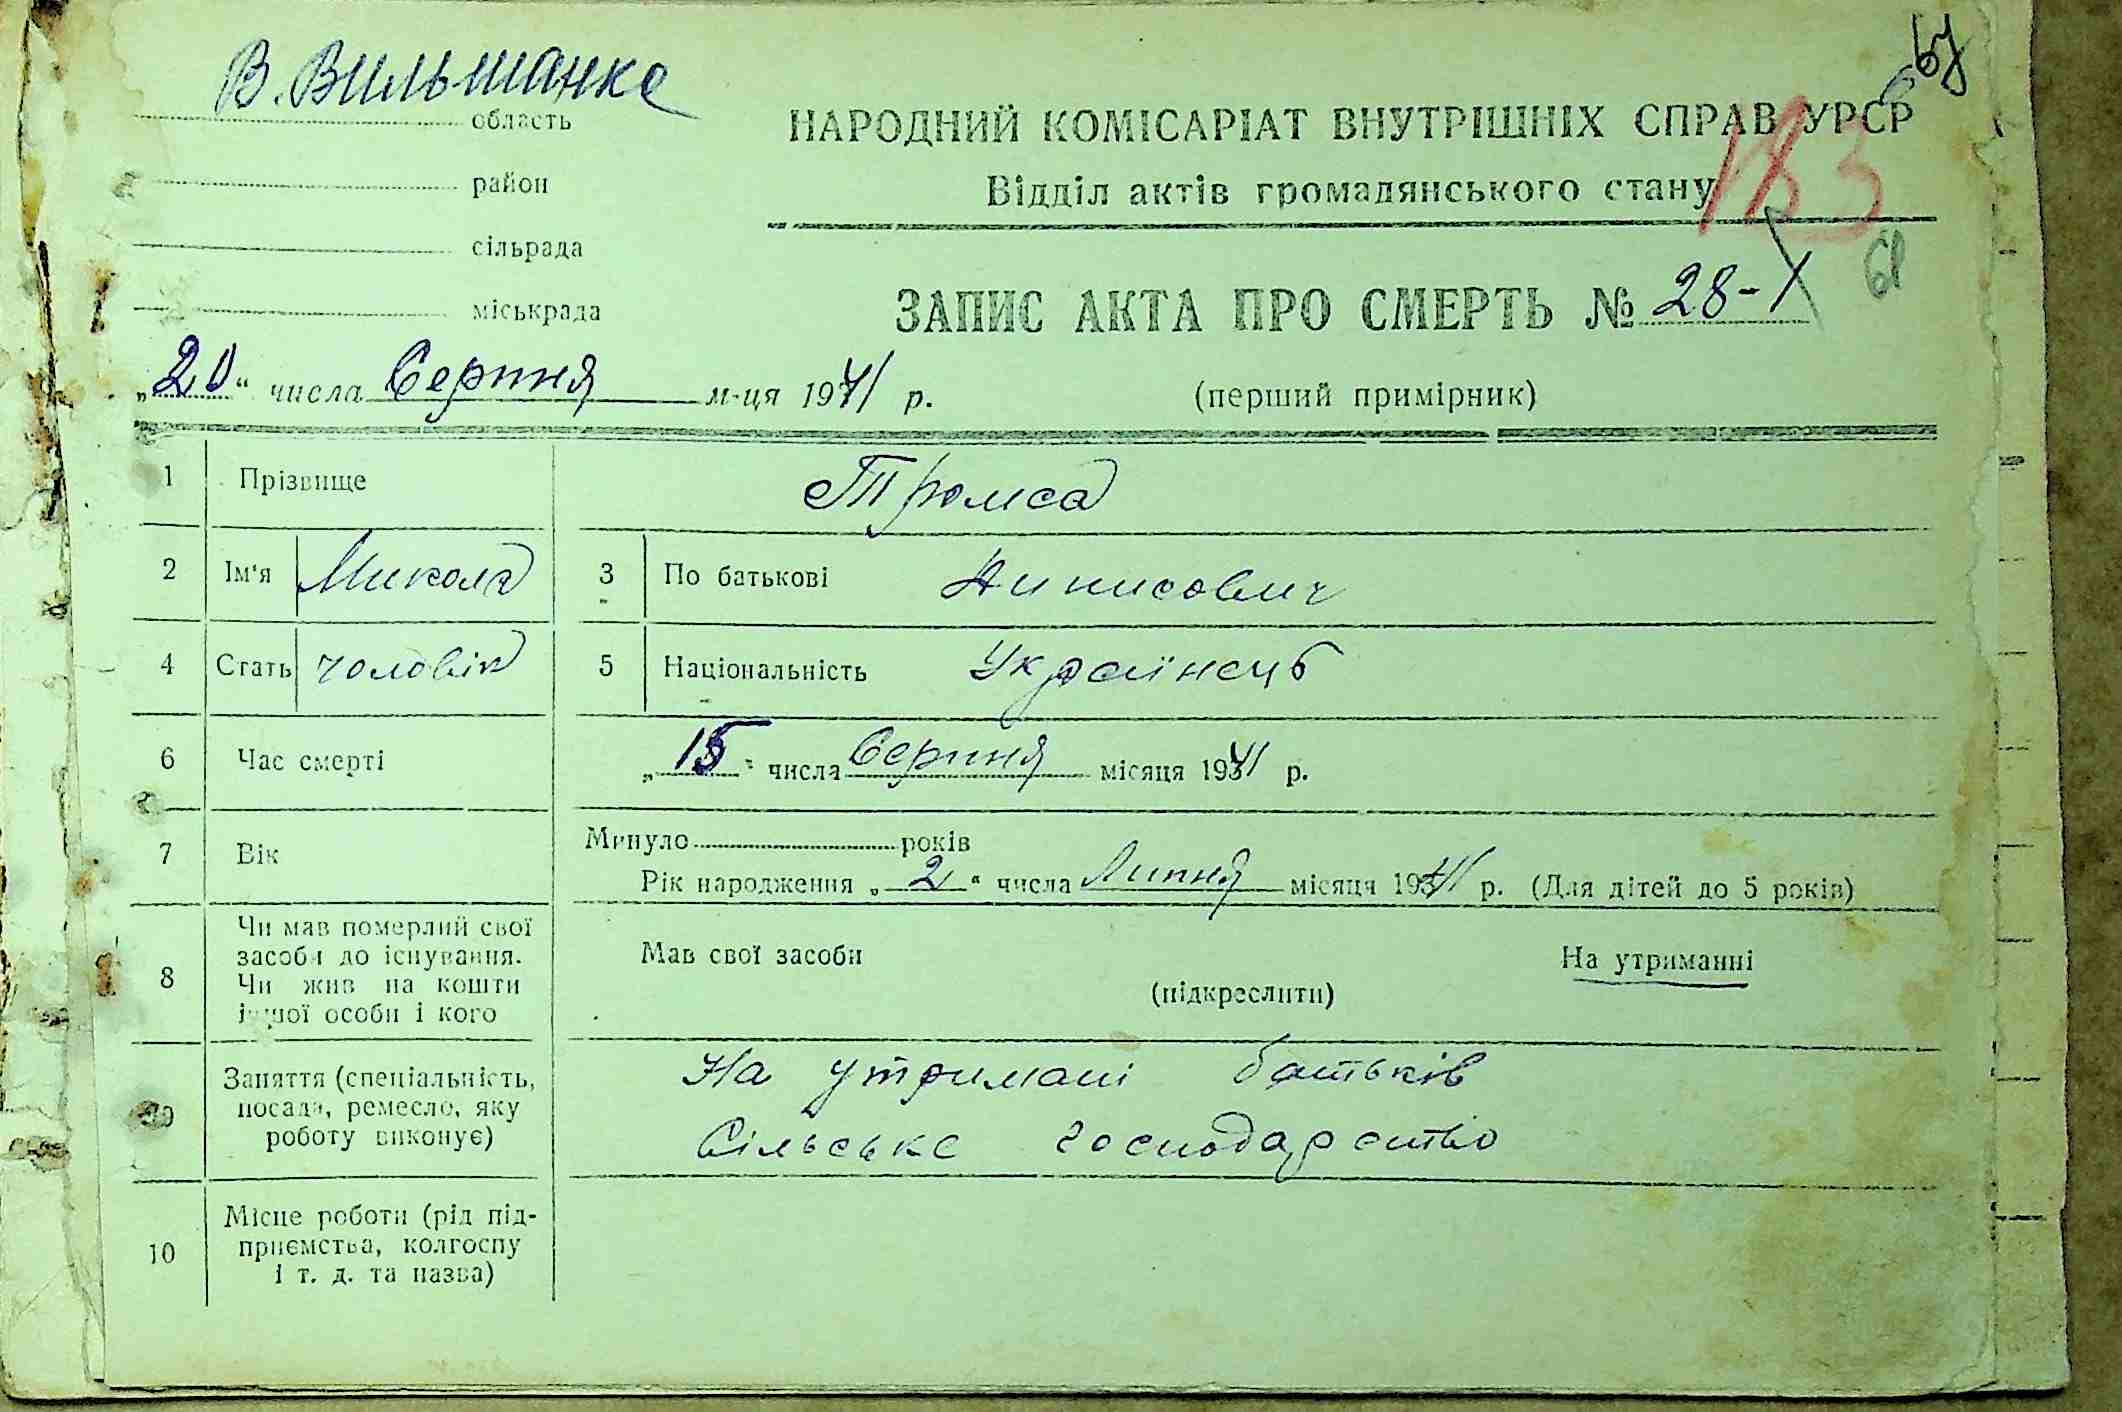 67
В. Вильшанке
область
НАРОДНИЙ КОМІСАРІАТ ВНУТРІШНІХ СПРАВ УРСР
район
Відділ актів громадянського стану
183
сільрада
61
міськрада
ЗАПИС АКТА ПРО СМЕРТЬ № 28-
„20“ числа Серпня м-ця 1941 р.
(перший примірник)
1 Прізвище Тромса
2 Ім'я Микола 3 По батькові
4 Стать чоловік 5 Національність Українець
6 Час смерті „15“ числа Серпня місяця 1941 р.
7 Вік Минуло років
Рік народження „2“ числа Липня місяця 1941 р. (Для дітей до 5 років)
8 Чи мав померлий свої
засоби до існування.
Чи жив на кошти
іншої особи і кого
Мав свої засоби На утриманні
(підкреслити)
9 Заняття (спеціальність,
посада, ремесло, яку
роботу виконує)
На утримані батьків
Сільське господарство
10 Місце роботи (рід під-
приємства, колгоспу
і т. д. та назва)